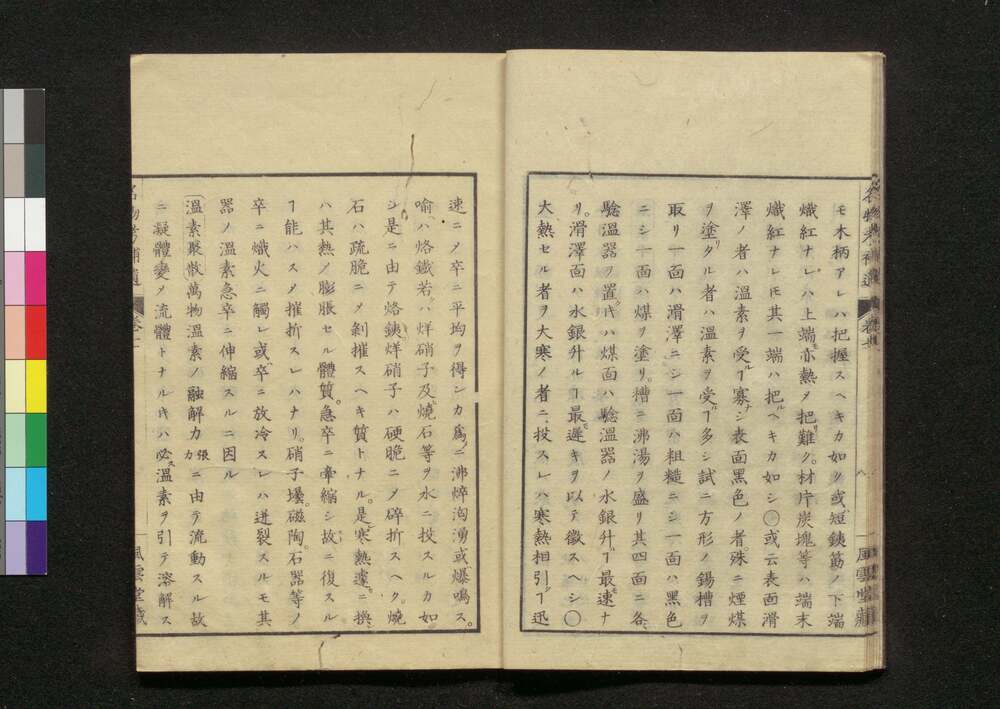 モ木柄アレハ把握スヘキカ如シ或短鋏筯ノ下端
熾紅ナレハ上端亦熱メ把難ク材片炭塊等ハ端末
熾紅ナレ𪜈其一端ハ把ルヘキカ如シ〇或云表面滑
澤ノ者ハ溫素ヲ受ルヿ寡ナシ表面黑色ノ者殊ニ煙煤
ヲ塗タル者ハ溫素ヲ受ルヿ多シ試ニ方形ノ錫槽ヲ
取リ一面ハ滑澤ニシ一面ハ粗糙ニシ一面ハ黑色
ニシ一面ハ煤ヲ塗リ槽ニ沸湯ヲ盛リ其四面ニ各
驗溫器ヲ置キハ煤面ハ驗溫器ノ水銀升ルヿ最速ナ
リ滑澤面ハ水銀升ルヿ最遲キヲ以テ徵スヘシ〇
大熱セル者ヲ大寒ノ者ニ投スレハ寒熱相引ヿ迅
八
風雲堂藏
速ニメ卒ニ平均ヲ得ンカ爲ニ沸焠洶湧或爆鳴ス
喻ハ烙鐵若ハ烊硝子及燒石等ヲ水ニ投スルカ如
シ是ニ由テ烙鋏烊硝子ハ硬脆ニメ碎折スヘク燒
石ハ疏脆ニメ剝摧スヘキ質トナル是寒熱遽ニ換
ハ其熱ノ膨脹セル體質急卒ニ牽縮シ故ニ復スル
ヿ能ハスメ摧折スレハナリ硝子壜磁陶石器等ノ
卒ニ熾火ニ觸レ或卒ニ放冷スレハ迸裂スルモ其
器ノ溫素急卒ニ伸縮スルニ因ル
溫素聚散萬物溫素ノ融解力張力ニ由テ流動スル故
ニ凝體變メ流體トナルキハ必ス溫素ヲ引テ溶解ス
名物考補遺
風雲堂藏